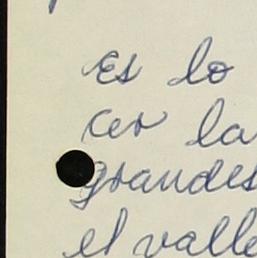 Es lo
cer la
grandes
el valle